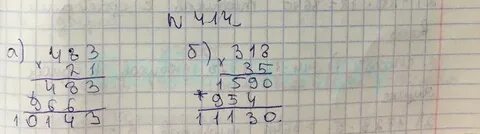 № 414.
а) 483 б) 318
× 21 × 35
483 1590
966 + 954
10143 11130.